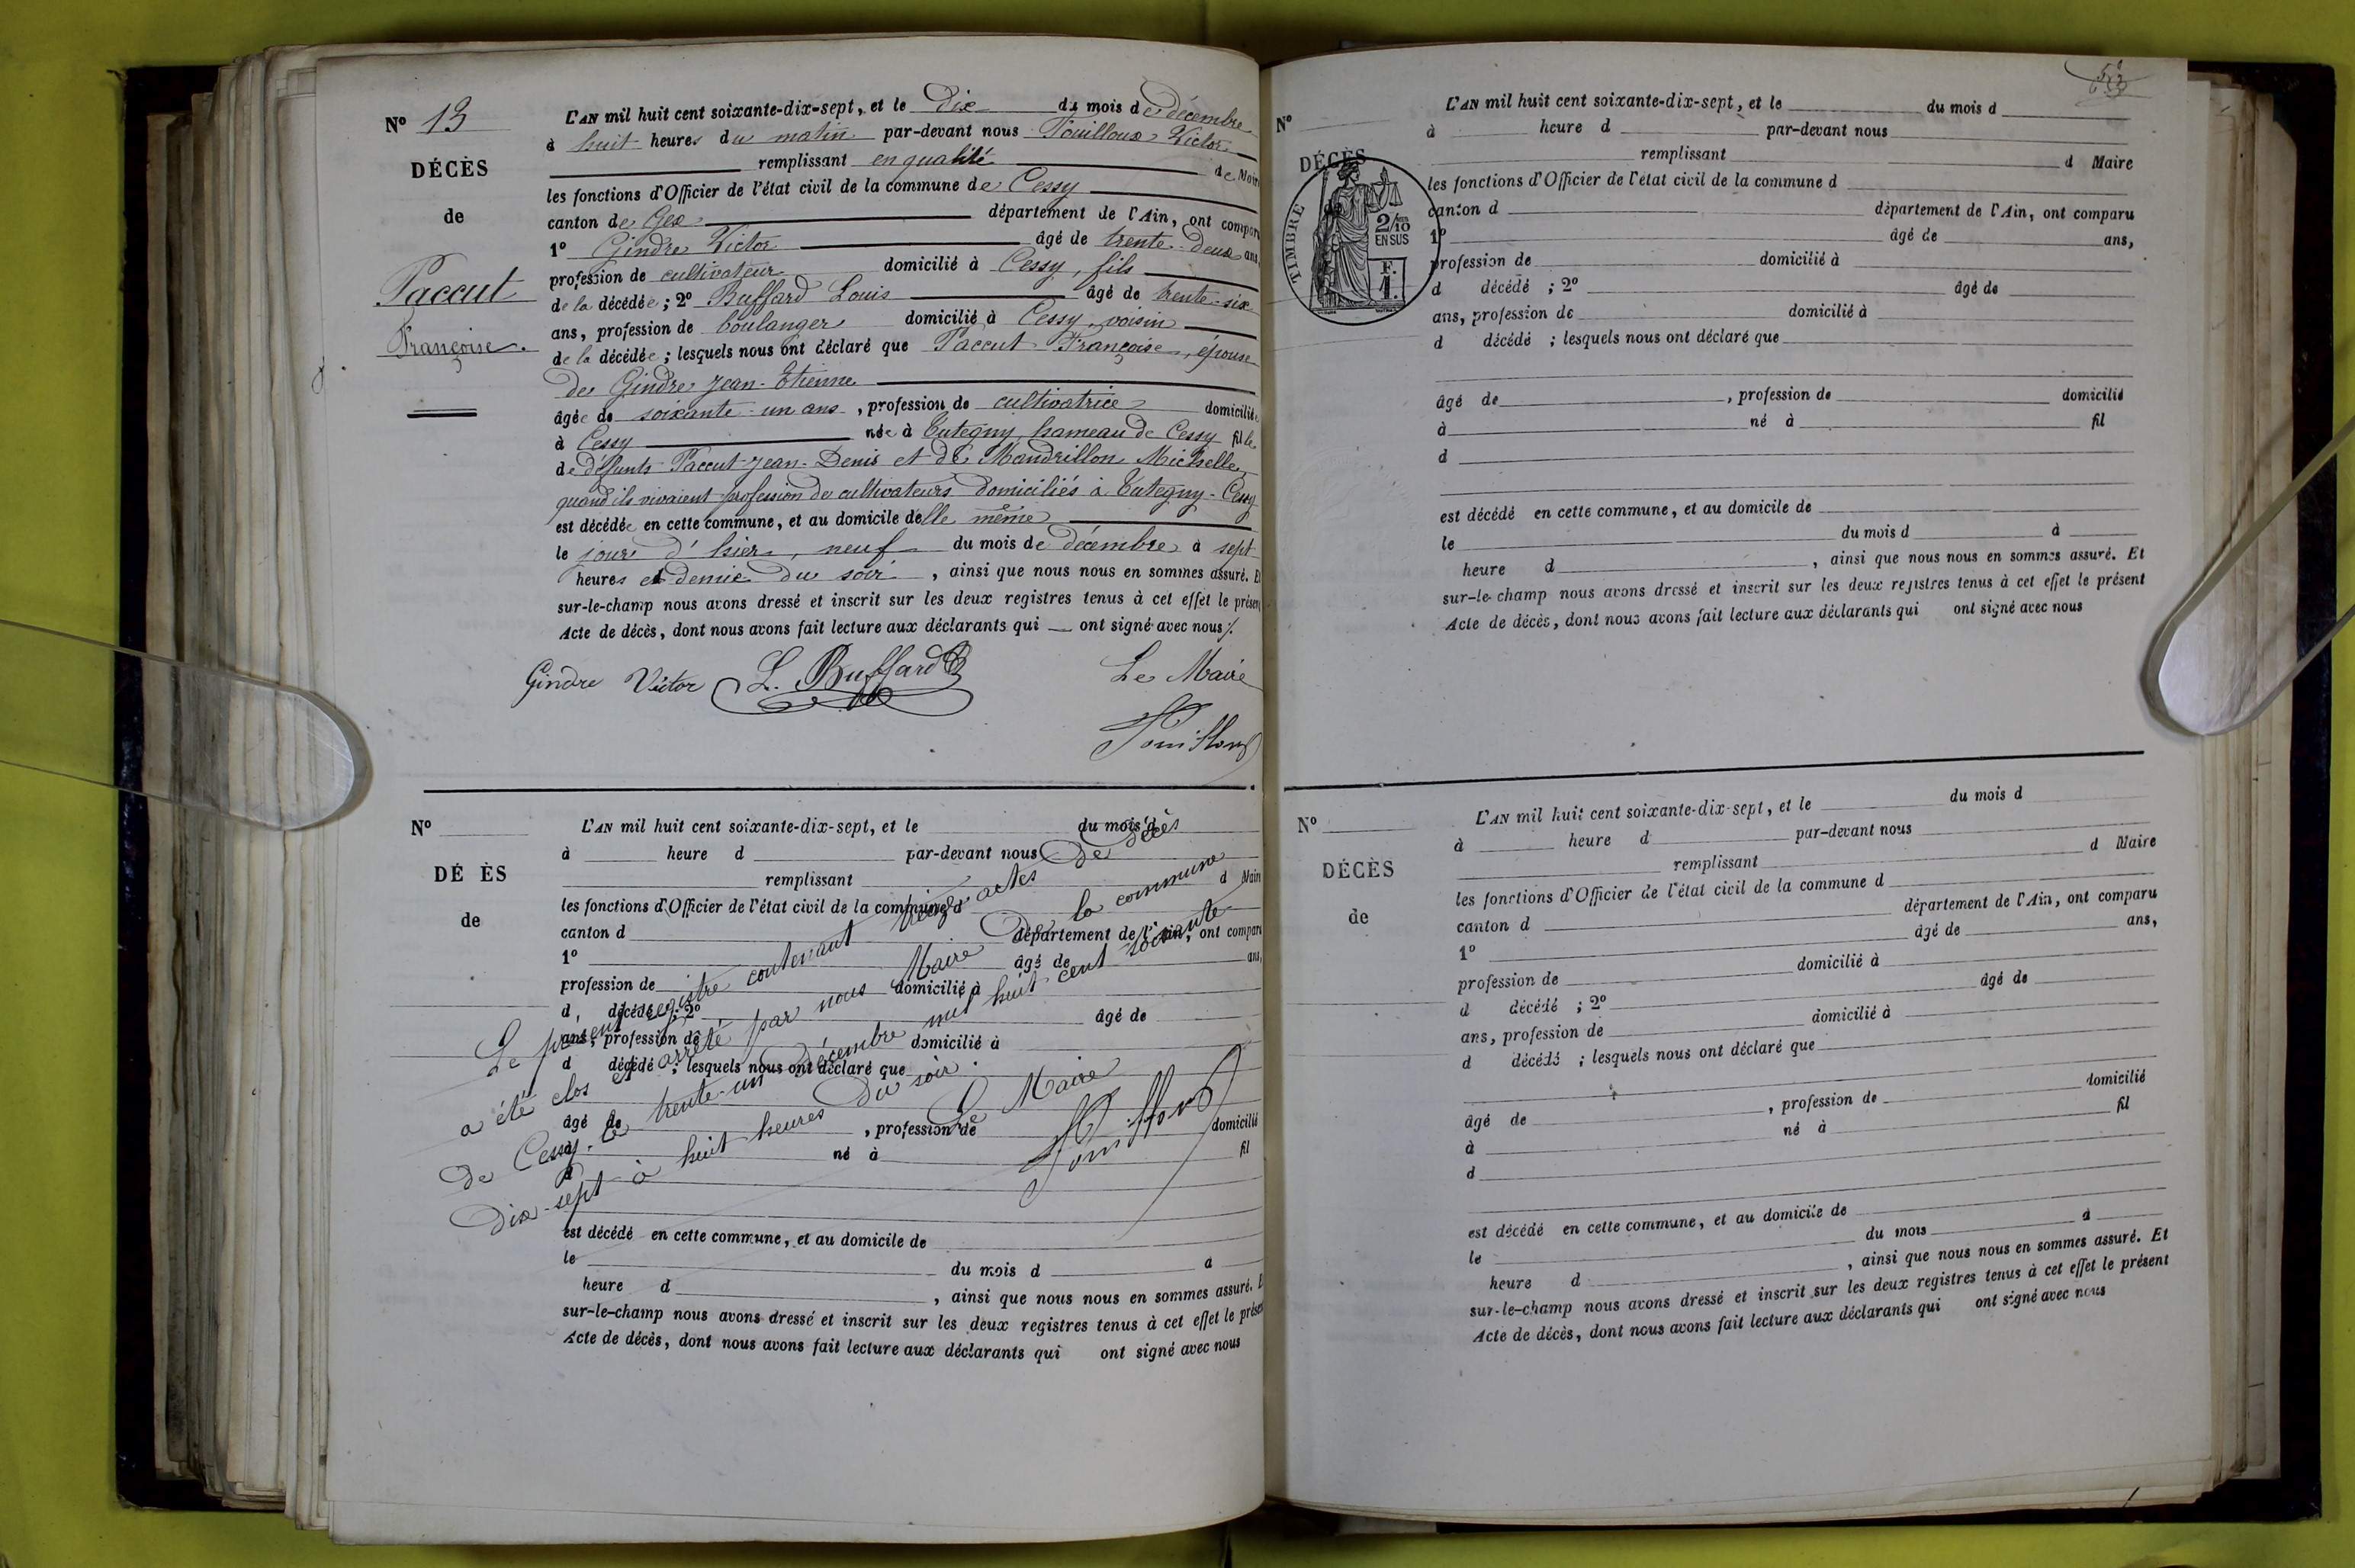 N° 13
DÉCÈS
de
Paccut
Françoise.
L'AN mil huit cent soixante-dix-sept, et le Dix du mois de décembre
à huit heures du matin par-devant nous Touilloux Victor
remplissant en qualité de Maire
les fonctions d'Officier de l'état civil de la commune de Cessy
canton de Gex département de l'Ain, ont comparu
1° Gindre Victor âgé de trente-deux ans
profession de cultivateur domicilié à Cessy, fils
de la décédée ; 2° Buffard Louis âgé de trente-six
ans, profession de boulanger domicilié à Cessy, voisin
de la décédée ; lesquels nous ont déclaré que Paccut Françoise, épouse
de Gindre Jean-Etienne
âgée de soixante-un ans, profession de cultivatrice domiciliée
à Cessy née à Tutegny, hameau de Cessy fille
de défunts Paccut Jean-Denis et de Mandrillon Michelle,
quand ils vivaient profession de cultivateurs domiciliés à Tutegny-Cessy
est décédée en cette commune, et au domicile d'elle même
le jour d'hier, neuf du mois de décembre à sept
heures et demie du soir, ainsi que nous nous en sommes assuré. Et
sur-le-champ nous avons dressé et inscrit sur les deux registres tenus à cet effet le présent
Acte de décès, dont nous avons fait lecture aux déclarants qui — ont signé avec nous ./.
Gindre Victor L. Buffard Le Maire
Touilloux
N°
DÉ ÈS
de
L'AN mil huit cent soixante-dix-sept, et le du mois d
à heure d par-devant nous
remplissant d Maire
les fonctions d'Officier de l'état civil de la commune d
canton d département de l'Ain, ont comparu
1° âgé de ans,
profession de domicilié à
d décédé ; 2° âgé de
ans, profession de domicilié à
d décédé ; lesquels nous ont déclaré que
âgé de , profession de domicilié
à né à fil
d
est décédé en cette commune, et au domicile de
le du mois d à
heure d , ainsi que nous nous en sommes assuré. E
sur-le-champ nous avons dressé et inscrit sur les deux registres tenus à cet effet le prése
Acte de décès, dont nous avons fait lecture aux déclarants qui ont signé avec nous
Le présent registre contenant treize actes de décès
a été clos et arrêté par nous Maire de la commune
de Cessy le trente-un décembre mil huit cent soixante
dix-sept à huit heures du soir.
Le Maire
Touilloux
N°
DÉCÈS
TIMBRE
2/10
EN SUS
F.
1.
L'AN mil huit cent soixante-dix-sept, et le du mois d
à heure d par-devant nous
remplissant d Maire
les fonctions d'Officier de l'état civil de la commune d
canton d département de l'Ain, ont comparu
1° âgé de ans,
profession de domicilié à
d décédé ; 2° âgé de
ans, profession de domicilié à
d décédé ; lesquels nous ont déclaré que
âgé de , profession de domicilié
à né à fil
d
est décédé en cette commune, et au domicile de
le du mois d à
heure d , ainsi que nous nous en sommes assuré. Et
sur-le-champ nous avons dressé et inscrit sur les deux registres tenus à cet effet le présent
Acte de décès, dont nous avons fait lecture aux déclarants qui ont signé avec nous
N°
DÉCÈS
de
L'AN mil huit cent soixante-dix-sept, et le du mois d
à heure d par-devant nous
remplissant d Maire
les fonctions d'Officier de l'état civil de la commune d
canton d département de l'Ain, ont comparu
1° âgé de ans,
profession de domicilié à
d décédé ; 2° âgé de
ans, profession de domicilié à
d décédé ; lesquels nous ont déclaré que
âgé de , profession de domicilié
à né à fil
d
est décédé en cette commune, et au domicile de
le du mois à
heure d , ainsi que nous nous en sommes assuré. Et
sur-le-champ nous avons dressé et inscrit sur les deux registres tenus à cet effet le présent
Acte de décès, dont nous avons fait lecture aux déclarants qui ont signé avec nous